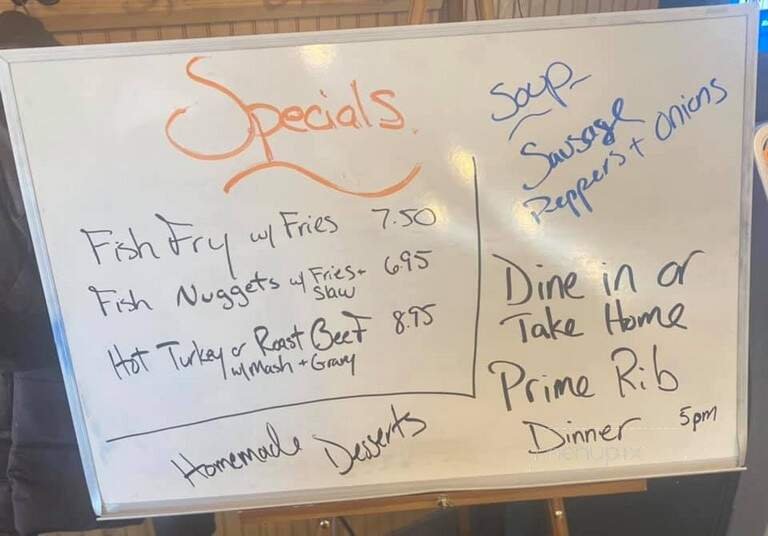 Specials.
Fish Fry w/ Fries 7.50
Fish Nuggets w/ Fries + Slaw 6.95
Hot Turkey or Roast Beef 8.95
w/ Mash + Gravy
Homemade Desserts
Soup-
Sausage
Peppers + Onions
Dine in or
Take Home
Prime Rib
Dinner 5pm
menupix